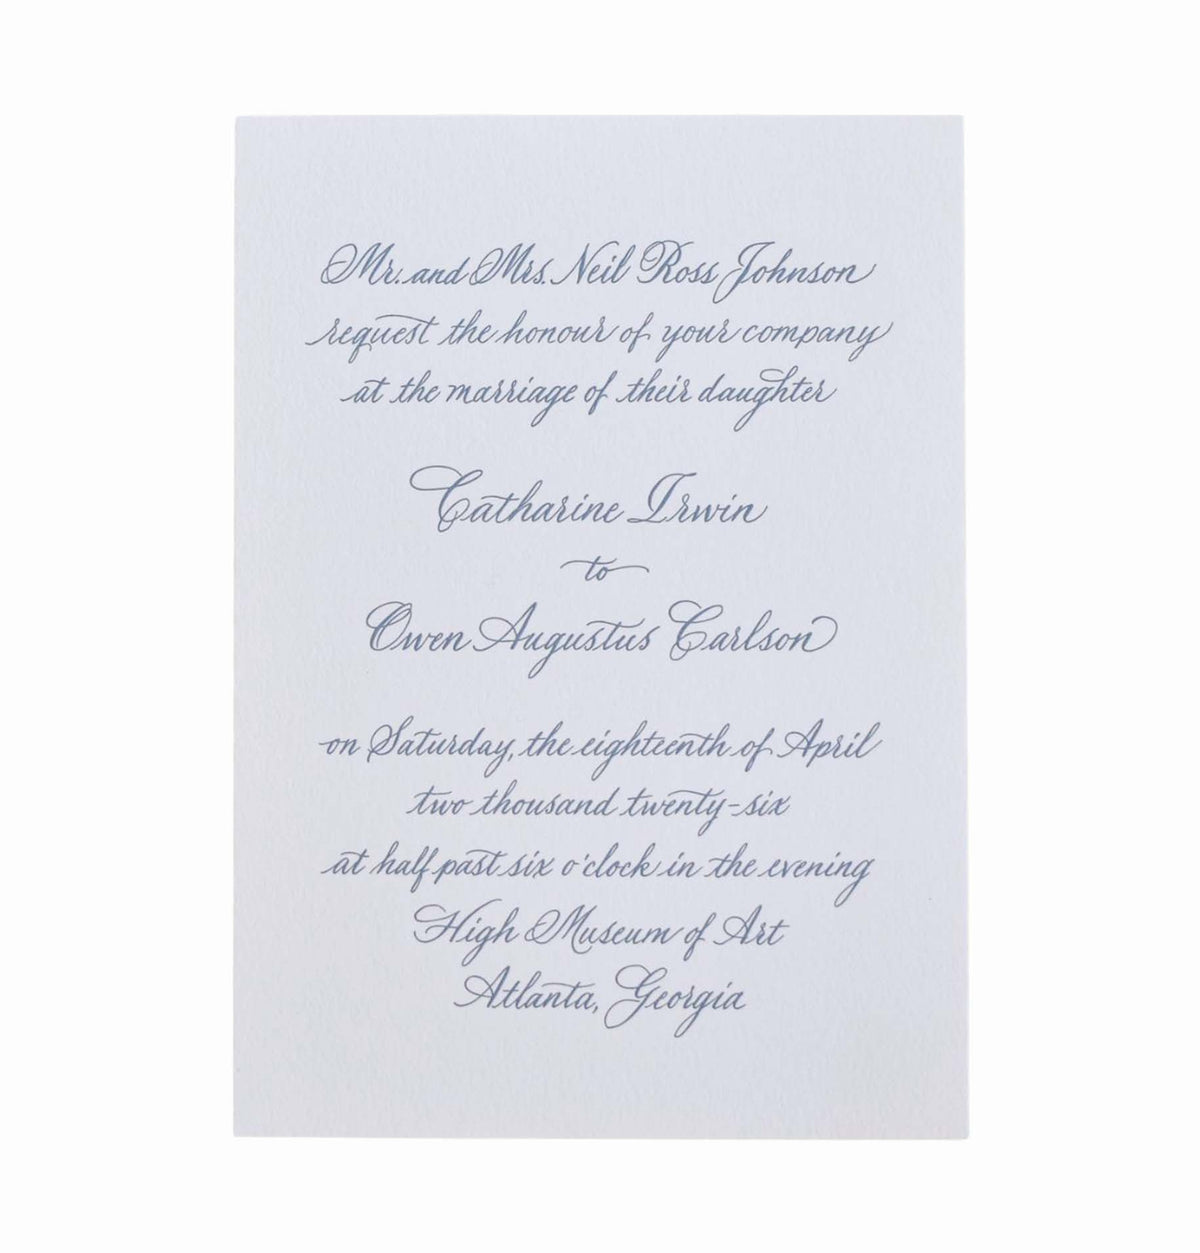 Mr. and Mrs. Neil Ross Johnson
request the honour of your company
at the marriage of their daughter
Catharine Irwin
to
Owen Augustus Carlson
on Saturday, the eighteenth of April
two thousand twenty-six
at half past six o'clock in the evening
High Museum of Art
Atlanta, Georgia